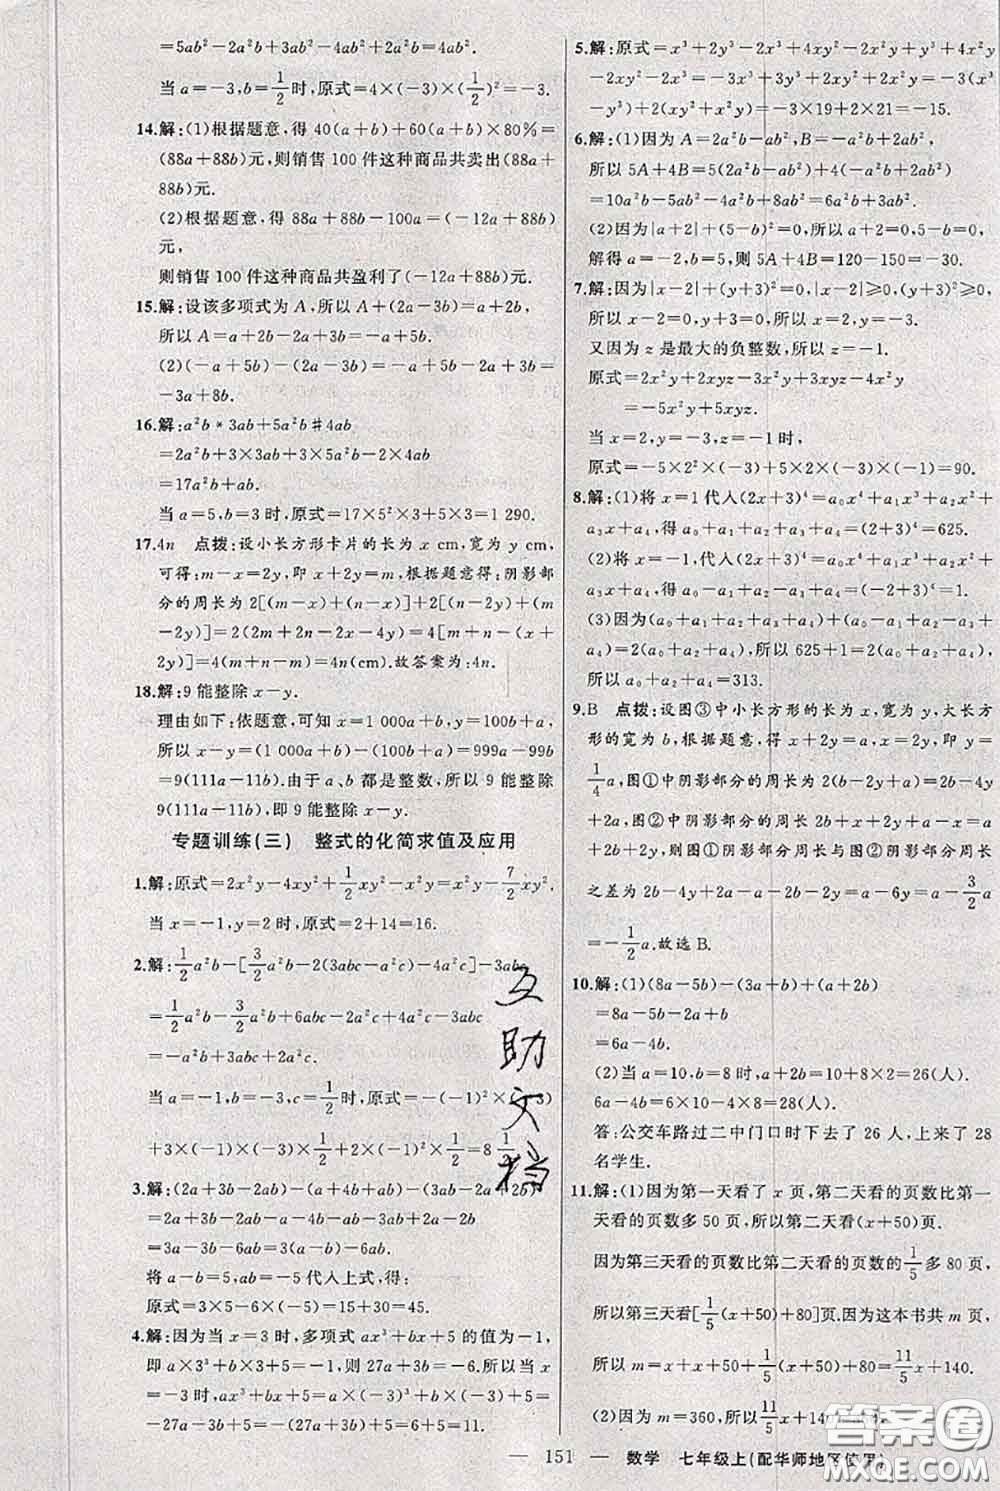 =5ab²-2a²b+3ab²-4ab²+2a²b=4ab².
当a=-3,b=1/2时,原式=4×(-3)×(1/2)²=-3.
14.解:(1)根据题意,得40(a+b)+60(a+b)×80%=
(88a+88b)元,则销售100件这种商品共卖出(88a+
88b)元.
(2)根据题意,得88a+88b-100a=(-12a+88b)
元,
则销售100件这种商品共盈利了(-12a+88b)元.
15.解:设该多项式为A,所以A+(2a-3b)=a+2b,
所以A=a+2b-2a+3b=-a+5b.
(2)(-a+5b)-(2a-3b)=-a+5b-2a+3b=
-3a+8b.
16.解:a²b*3ab+5a²b#4ab
=2a²b+3×3ab+3×5a²b-2×4ab
=17a²b+ab.
当a=5,b=3时,原式=17×5²×3+5×3=1 290.
17.4n 点拨:设小长方形卡片的长为x cm,宽为y cm,
可得:m-x=2y,即x+2y=m,根据题意得:阴影部
分的周长为2[(m-x)+(n-x)]+2[(n-2y)+(m
-2y)]=2(2m+2n-2x-4y)=4[m+n-(x+
2y)]=4(m+n-m)=4n(cm).故答案为:4n.
18.解:9能整除x-y.
理由如下:依题意,可知x=1 000a+b,y=100b+a,
所以x-y=(1 000a+b)-(100b+a)=999a-99b
=9(111a-11b).由于a、b都是整数,所以9能整除
9(111a-11b),即9能整除x-y.
专题训练(三) 整式的化简求值及应用
1.解:原式=2x²y-4xy²+1/2xy²-x²y=x²y-7/2xy².
当x=-1,y=2时,原式=2+14=16.
2.解:1/2a²b-[3/2a²b-2(3abc-a²c)-4a²c]-3abc
=1/2a²b-3/2a²b+6abc-2a²c+4a²c-3abc
=-a²b+3abc+2a²c.
当a=-1,b=-3,c=1/2时,原式=-(-1)²×(-3)
+3×(-1)×(-3)×1/2+2×(-1)²×1/2=8 1/2.
3.解:(2a+3b-2ab)-(a+4b+ab)-(3ab-2a+2b)
=2a+3b-2ab-a-4b-ab-3ab+2a-2b
=3a-3b-6ab.
将a-b=5,ab=-5代入上式,得:
原式=3×5-6×(-5)=15+30=45.
4.解:因为当x=3时,多项式ax³+bx+5的值为-1,
即a×3³+b×3+5=-1,则27a+3b=-6.所以当x=
-3时,ax³+bx+5=a×(-3)³+b×(-3)+5=
-27a-3b+5=-(27a+3b)+5=6+5=11.
5.解:原式=x³+2y³-2x³+4xy²-2x²y+y³+4x²y
-2xy²-2x³=-3x³+3y³+2xy²+2x²y=-3(x³
-y³)+2(xy²+x²y)=-3×19+2×21=-15.
6.解:(1)因为A=2a²b-ab²,B=-a²b+2ab²,
所以5A+4B=5(2a²b-ab²)+4(-a²b+2ab²)
=10a²b-5ab²-4a²b+8ab²=6a²b+3ab².
(2)因为|a+2|+(5-b)²=0,所以a+2=0,5-b=0,
解得a=-2,b=5,则5A+4B=120-150=-30.
7.解:因为|x-2|+(y+3)²=0,|x-2|≥0,(y+3)²≥0,
所以x-2=0,y+3=0,所以x=2,y=-3.
又因为z是最大的负整数,所以z=-1.
原式=2x²y+2xyz-3x²y+3xyz-4x²y
=-5x²y+5xyz.
当x=2,y=-3,z=-1时,
原式=-5×2²×(-3)+5×2×(-3)×(-1)=90.
8.解:(1)将x=1代人(2x+3)⁴=a₀x⁴+a₁x³+a₂x²+
a₃x+a₄,得a₀+a₁+a₂+a₃+a₄=(2+3)⁴=625.
(2)将x=-1,代人(2x+3)⁴=a₀x⁴+a₁x³+a₂x²+
a₃x+a₄,得a₀-a₁+a₂-a₃+a₄=(-2+3)⁴=1.
(3)因为(a₀+a₁+a₂+a₃+a₄)+(a₀-a₁+a₂-a₃
+a₄)=2(a₀+a₂+a₄),所以625+1=2(a₀+a₂+
a₄),所以a₀+a₂+a₄=313.
9.B 点拨:设图③中小长方形的长为x,宽为y,大长方
形的宽为b,根据题意,得x+2y=a,x=2y,即y=
1/4a,图①中阴影部分的周长为2(b-2y+a)=2b-4y
+2a,图②中阴影部分的周长2b+x+2y+a-x=a+
2b+2y,则图①阴影部分周长与图②阴影部分周长
之差为2b-4y+2a-a-2b-2y=a-6y=a-3/2a
=-1/2a.故选B.
10.解:(1)(8a-5b)-(3a+b)+(a+2b)
=8a-5b-2a+b
=6a-4b.
(2)当a=10,b=8时,6a-4b=28(人).
6a-4b=6×10-4×8=28(人).
答:公交车路过二中门口时下去了26人,上来了28
名学生.
11.解:(1)因为第一天看了x页,第二天看的页数比第一
天看的页数多50页,所以第二天看(x+50)页.
因为第三天看的页数比第二天看的页数的1/5多80页,
所以第三天看[1/5(x+50)+80]页.因为这本书共m页,
所以m=x+(x+50)+1/5(x+50)+80=11/5x+140.
(2)因为m=360,所以11/5x+
— 151 — 数学 七年级上(配华师地区使用)
互助文档
答案圈
MXQE.COM